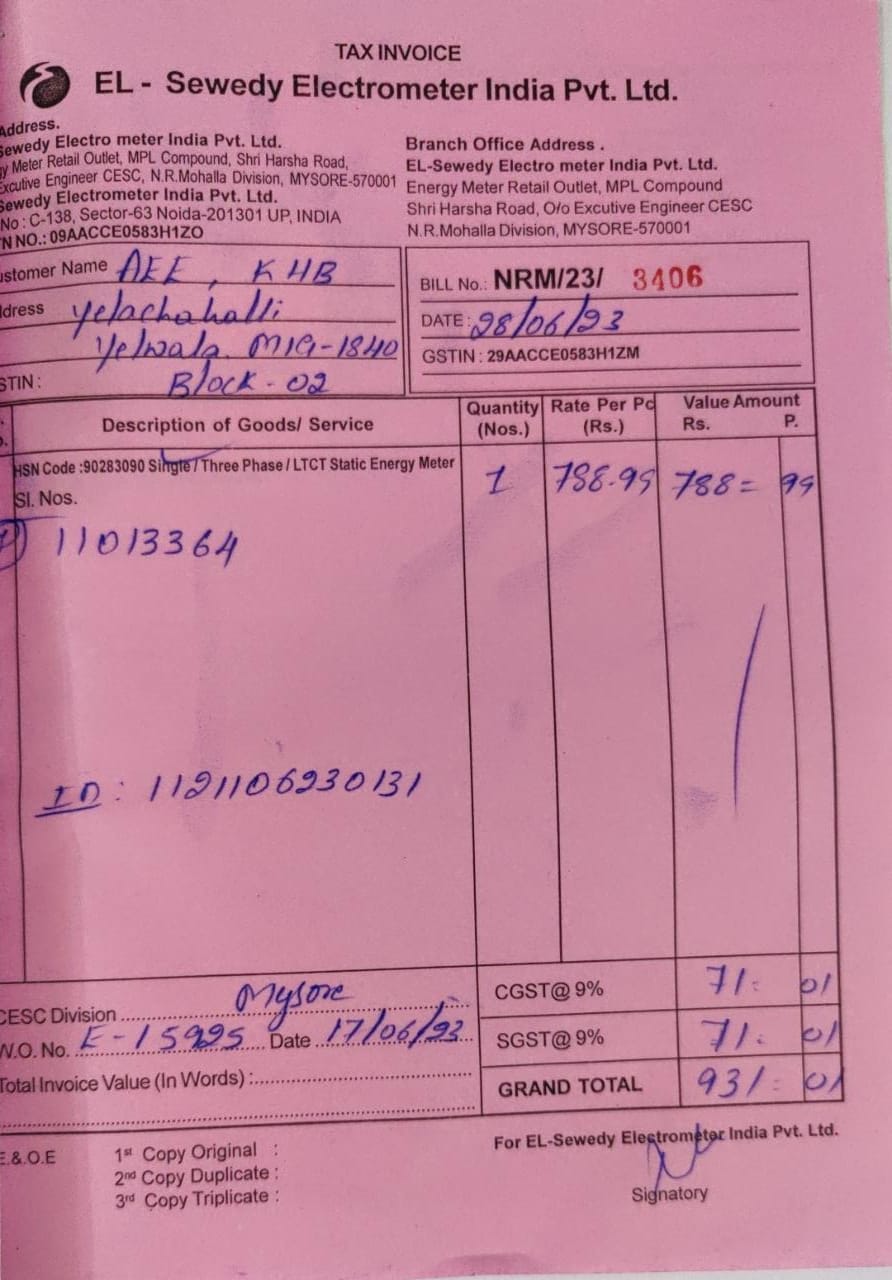 TAX INVOICE
EL - Sewedy Electrometer India Pvt. Ltd.
Address.
Sewedy Electro meter India Pvt. Ltd.
y Meter Retail Outlet, MPL Compound, Shri Harsha Road,
Excutive Engineer CESC, N.R.Mohalla Division, MYSORE-570001
Sewedy Electrometer India Pvt. Ltd.
No : C-138, Sector-63 Noida-201301 UP, INDIA
N NO.: 09AACCE0583H1ZO
Branch Office Address .
EL-Sewedy Electro meter India Pvt. Ltd.
Energy Meter Retail Outlet, MPL Compound
Shri Harsha Road, O/o Excutive Engineer CESC
N.R.Mohalla Division, MYSORE-570001
ustomer Name AEE, KHB
dress Yelachahalli
Yelwala MIG-1840
STIN : Block-02
BILL No.: NRM/23/ 3406
DATE : 28/06/23
GSTIN : 29AACCE0583H1ZM
Description of Goods/ Service
Quantity (Nos.)
Rate Per Pc (Rs.)
Value Amount
Rs. P.
HSN Code :90283090 Single / Three Phase / LTCT Static Energy Meter
1 788.99 788= 99
Sl. Nos.
1) 11013364
ID: 1121106230131
CESC Division Mysore
W.O. No. E-15925 Date 17/06/23
Total Invoice Value (In Words) :
CGST@ 9% 71. 01
SGST@ 9% 71. 01
GRAND TOTAL 931. 01
E.&.O.E
1st Copy Original :
2nd Copy Duplicate :
3rd Copy Triplicate :
For EL-Sewedy Electrometer India Pvt. Ltd.
Signatory